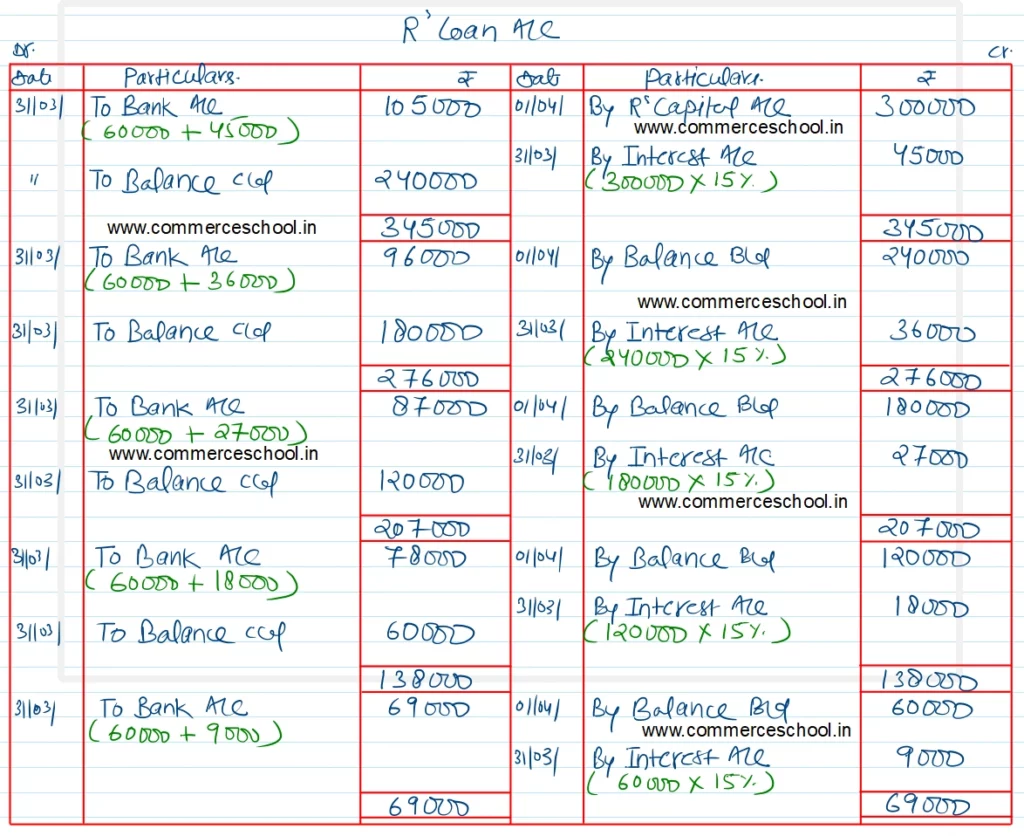 R's Loan A/c
Dr. Cr.
Date Particulars. ₹ Date Particulars. ₹
31/03/ To Bank A/c 105000 01/04/ By R's Capital A/c 300000
(60000 + 45000) www.commerceschool.in
31/03/ By Interest A/c 45000
" To Balance C/d 240000 (300000 X 15%.)
www.commerceschool.in 345000 345000
31/03/ To Bank A/c 96000 01/04/ By Balance B/d 240000
(60000 + 36000)
www.commerceschool.in
31/03/ To Balance C/d 180000 31/03/ By Interest A/c 36000
(240000 X 15%.)
276000 276000
31/03/ To Bank A/c 87000 01/04/ By Balance B/d 180000
(60000 + 27000)
www.commerceschool.in 31/03/ By Interest A/c 27000
31/03/ To Balance C/d 120000 (180000 X 15%.)
www.commerceschool.in
207000 207000
31/03/ To Bank A/c 78000 01/04/ By Balance B/d 120000
(60000 + 18000)
31/03/ By Interest A/c 18000
31/03/ To Balance C/d 60000 (120000 X 15%.)
138000 138000
31/03/ To Bank A/c 69000 01/04/ By Balance B/d 60000
(60000 + 9000) www.commerceschool.in
31/03/ By Interest A/c 9000
(60000 X 15%.)
69000 69000